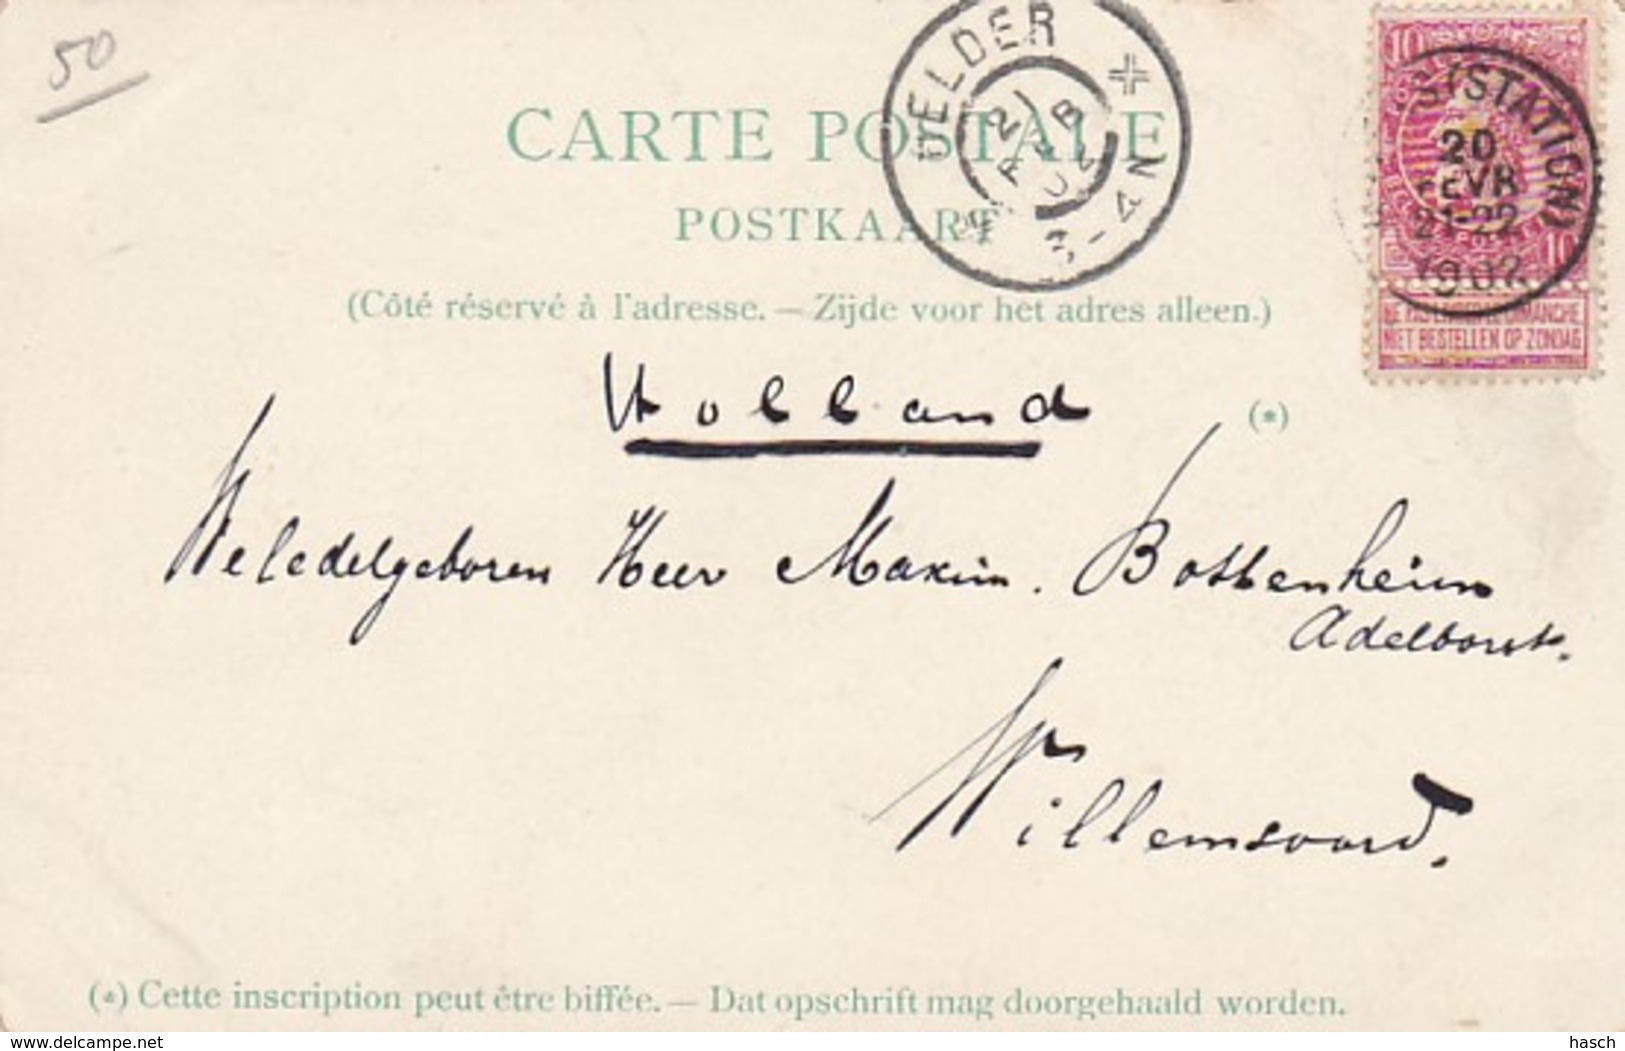 50
HELDER
21 FEB 02
3-4N
10 10
S (STATION)
20
FEVR
21-22
1902
NIET BESTELLEN OP ZONDAG
CARTE POSTALE
POSTKAART
(Côté réservé à l'adresse. — Zijde voor het adres alleen.)
Holland
(*)
Weledelgeboren Heer Maxim. Bottenheim
Adelborst.
Willemsoord.
(*) Cette inscription peut être biffée. — Dat opschrift mag doorgehaald worden.
www.delcampe.net
hasch